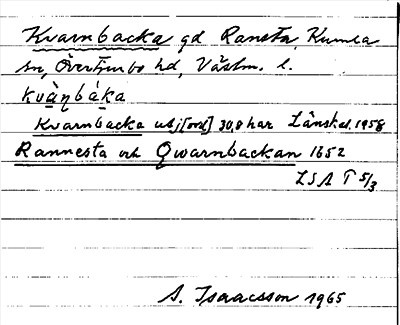 Kvarnbacka gd Ransta, Kumla
sn, Övertjurbo hd, Västm. l.
kvàṇbáka
Kvarnbacka utj[ord] 30,8 har Länskat. 1958
Rannesta och Qwarnbackan 1652
LSA T 5/3
A. Isaacsson 1965